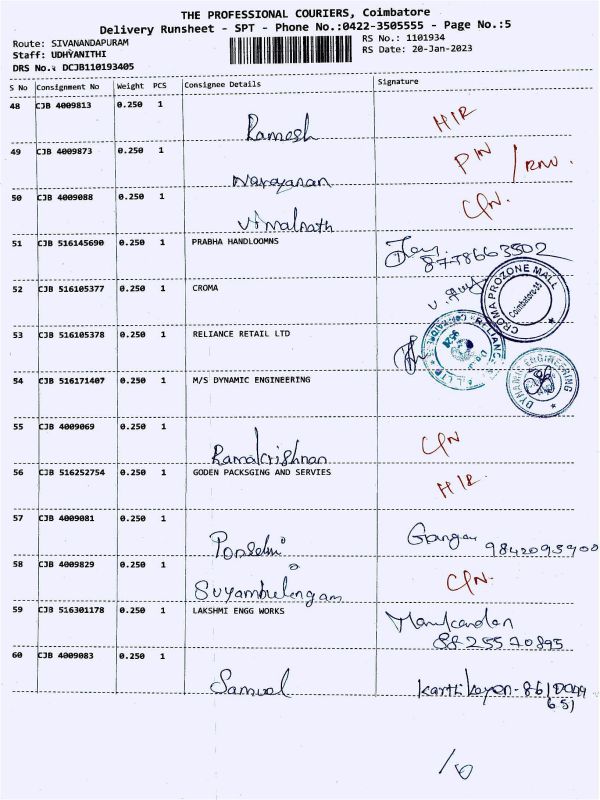 THE PROFESSIONAL COURIERS, Coimbatore
Delivery Runsheet - SPT - Phone No.:0422-3505555 - Page No.:5
Route: SIVANANDAPURAM RS No.: 1101934
Staff: UDHYANITHI RS Date: 20-Jan-2023
DRS No.: DCJB110193405
S No Consignment No Weight PCS Consignee Details Signature
48 CJB 4009813 0.250 1 Ramesh H/R
49 CJB 4009873 0.250 1 Narayanan P/N
50 CJB 4009088 0.250 1 Vimalnath C/N.
51 CJB 516145690 0.250 1 PRABHA HANDLOOMNS 8778663502
52 CJB 516105377 0.250 1 CROMA CROMA PROZONE MALL Coimbatore-35
53 CJB 516105378 0.250 1 RELIANCE RETAIL LTD
54 CJB 516171407 0.250 1 M/S DYNAMIC ENGINEERING DYNAMIC ENGINEERING
55 CJB 4009069 0.250 1 Ramakrishnan C/N
56 CJB 516252754 0.250 1 GODEN PACKSGING AND SERVIES H/R.
57 CJB 4009081 0.250 1 Ponselvi Ganga 9842095900
58 CJB 4009829 0.250 1 Suyambulingam C/N.
59 CJB 516301178 0.250 1 LAKSHMI ENGG WORKS Manikandan
8825570895
60 CJB 4009083 0.250 1 Samuel Karthikeyan-